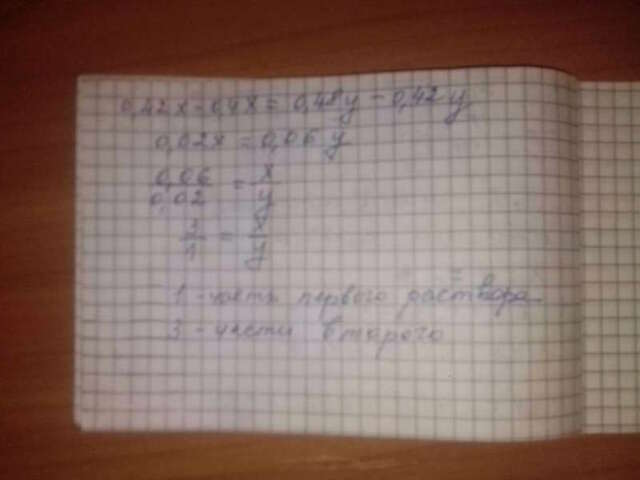 0,42x - 0,4x = 0,48y - 0,42y
0,02x = 0,06y
0,06/0,02 = x/y
3/1 = x/y
1 - часть первого раствора
3 - части второго